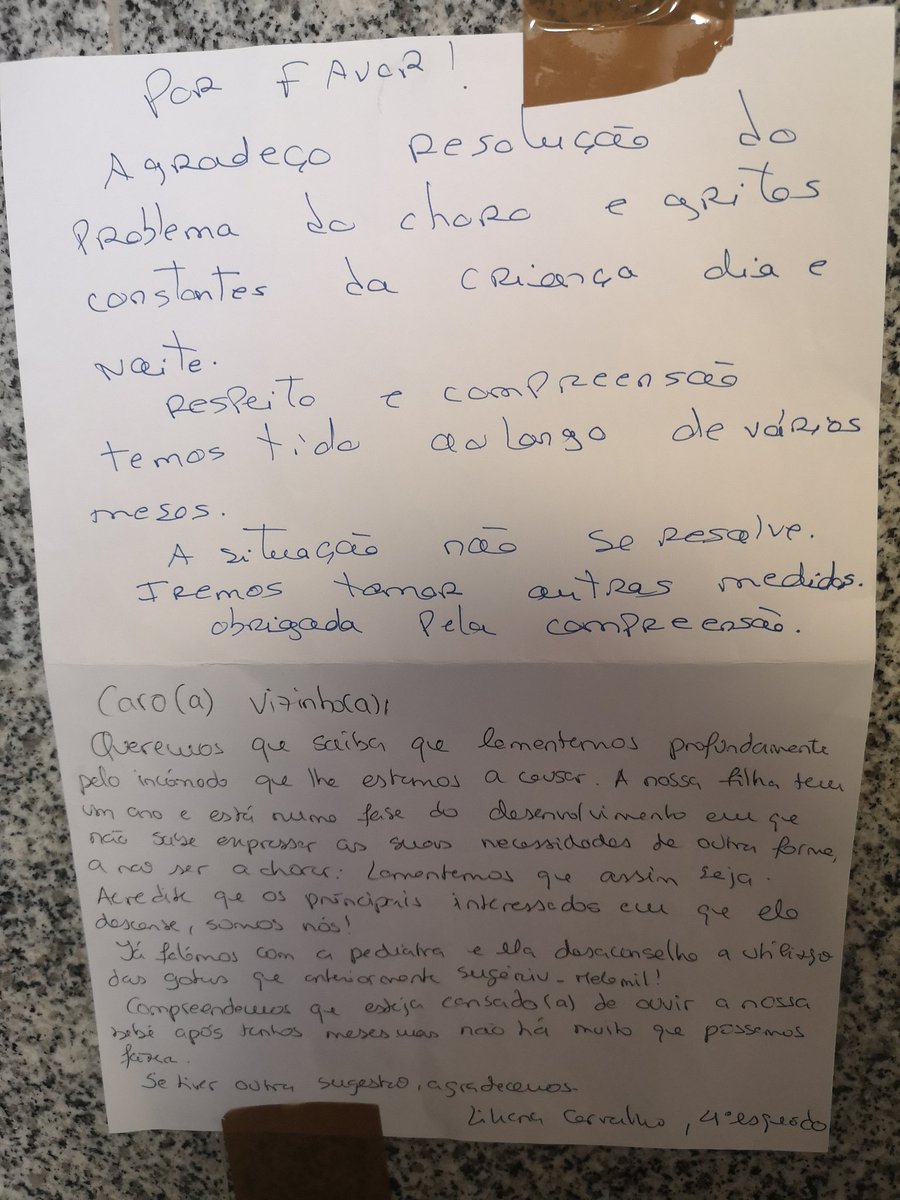 POR FAVOR!
Agradeço resolução do
problema do choro e gritos
constantes da criança dia e
noite.
Respeito e compreensão
temos tido ao longo de vários
meses.
A situação não se resolve.
Iremos tomar outras medidas.
obrigada pela compreensão.
Caro(a) Vizinho(a),
Queremos que saiba que lamentamos profundamente
pelo incómodo que lhe estamos a causar. A nossa filha tem
um ano e está numa fase do desenvolvimento em que
não sabe expressar as suas necessidades de outra forma,
a não ser a chorar. Lamentamos que assim seja.
Acredite que os principais interessados em que ela
descanse, somos nós!
Já falámos com a pediatra e ela desaconselha a utilização
das gotas que anteriormente sugeriu - Melamil!
Compreendemos que esteja cansado(a) de ouvir a nossa
bebé após tantos meses mas não há muito que possamos
fazer.
Se tiver outra sugestão, agradecemos.
Liliana Carvalho, 4º esquerdo